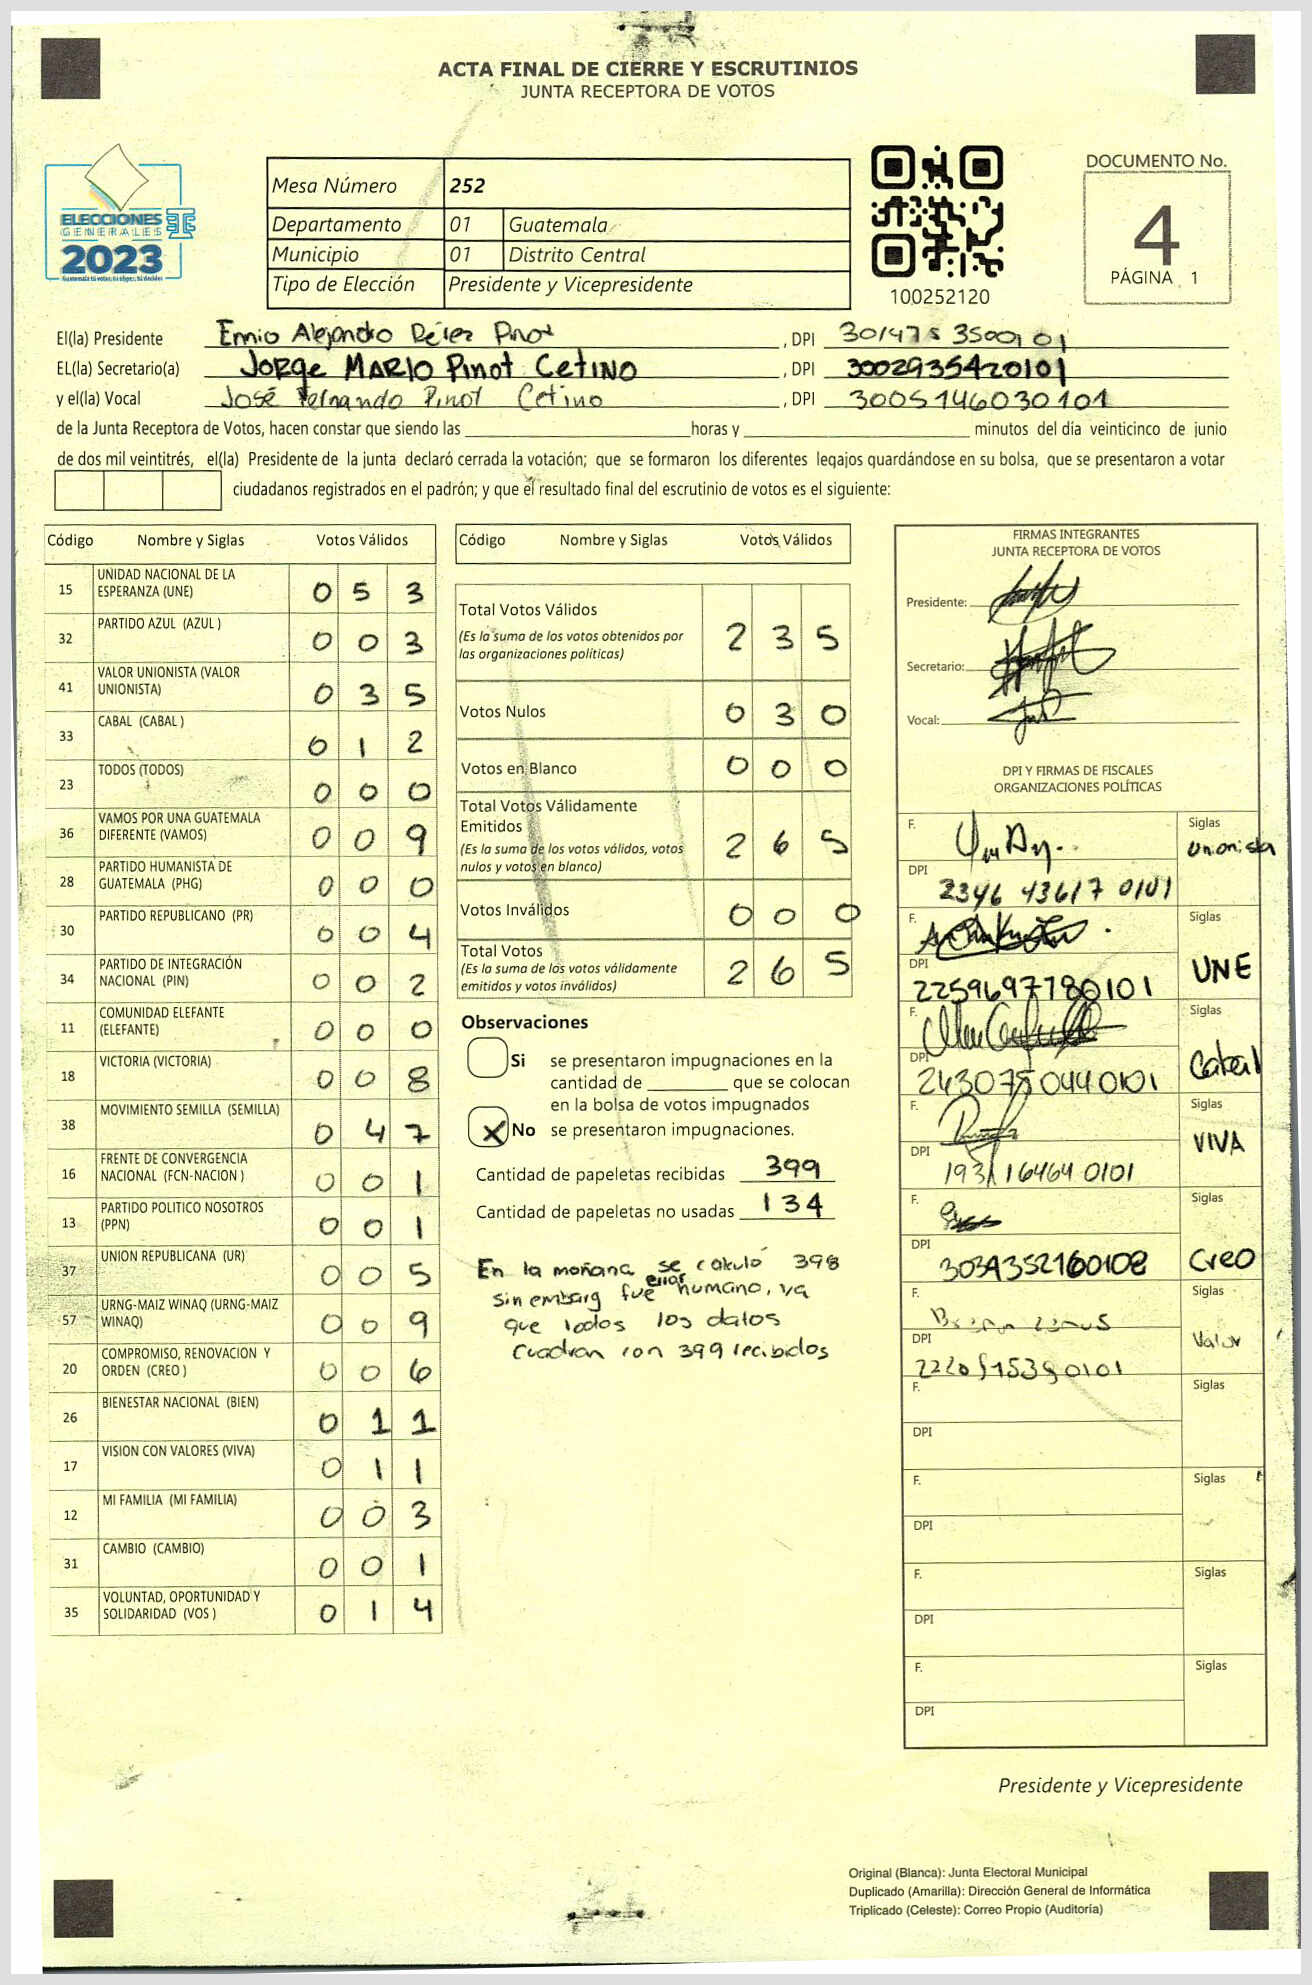 ACTA FINAL DE CIERRE Y ESCRUTINIOS
JUNTA RECEPTORA DE VOTOS
ELECCIONES
GENERALES
2023
Mesa Número 252
Departamento 01 Guatemala
Municipio 01 Distrito Central
Tipo de Elección Presidente y Vicepresidente
100252120
DOCUMENTO No.
4
PÁGINA 1
El(la) Presidente Alejandro Pérez Pinot , DPI
EL(la) Secretario(a) Jorge MARIO Pinot CetiNO , DPI 3002935420101
y el(la) Vocal José Fernando Pinot Cetino , DPI 3005146030101
de la Junta Receptora de Votos, hacen constar que siendo las horas y minutos del día veinticinco de junio
de dos mil veintitrés, el(la) Presidente de la junta declaró cerrada la votación; que se formaron los diferentes legajos guardándose en su bolsa, que se presentaron a votar
ciudadanos registrados en el padrón; y que el resultado final del escrutinio de votos es el siguiente:
Código Nombre y Siglas Votos Válidos
15 UNIDAD NACIONAL DE LA ESPERANZA (UNE) 0 5 3
32 PARTIDO AZUL (AZUL ) 0 0 3
41 VALOR UNIONISTA (VALOR UNIONISTA) 0 3 5
33 CABAL (CABAL ) 0 1 2
23 TODOS (TODOS) 0 0 0
36 VAMOS POR UNA GUATEMALA DIFERENTE (VAMOS) 0 0 9
28 PARTIDO HUMANISTA DE GUATEMALA (PHG) 0 0 0
30 PARTIDO REPUBLICANO (PR) 0 0 4
34 PARTIDO DE INTEGRACIÓN NACIONAL (PIN) 0 0 2
11 COMUNIDAD ELEFANTE (ELEFANTE) 0 0 0
18 VICTORIA (VICTORIA) 0 0 8
38 MOVIMIENTO SEMILLA (SEMILLA) 0 4 7
16 FRENTE DE CONVERGENCIA NACIONAL (FCN-NACION ) 0 0 1
13 PARTIDO POLITICO NOSOTROS (PPN) 0 0 1
37 UNION REPUBLICANA (UR) 0 0 5
57 URNG-MAIZ WINAQ (URNG-MAIZ WINAQ) 0 0 9
20 COMPROMISO, RENOVACION Y ORDEN (CREO ) 0 0 6
26 BIENESTAR NACIONAL (BIEN) 0 1 1
17 VISION CON VALORES (VIVA) 0 1 1
12 MI FAMILIA (MI FAMILIA) 0 0 3
31 CAMBIO (CAMBIO) 0 0 1
35 VOLUNTAD, OPORTUNIDAD Y SOLIDARIDAD (VOS ) 0 1 4
Código Nombre y Siglas Votos Válidos
Total Votos Válidos 2 3 5
(Es la suma de los votos obtenidos por
las organizaciones políticas)
Votos Nulos 0 3 0
Votos en Blanco 0 0 0
Total Votos Válidamente
Emitidos 2 6 5
(Es la suma de los votos válidos, votos
nulos y votos en blanco)
Votos Inválidos 0 0 0
Total Votos 2 6 5
(Es la suma de los votos válidamente
emitidos y votos inválidos)
Observaciones
Si se presentaron impugnaciones en la
cantidad de que se colocan
en la bolsa de votos impugnados
X No se presentaron impugnaciones.
Cantidad de papeletas recibidas 399
Cantidad de papeletas no usadas 134
En la mañana se calculó 398
sin embarg fue error humano, ya
que todos los datos
cuadran con 399 recibidos
FIRMAS INTEGRANTES
JUNTA RECEPTORA DE VOTOS
Presidente:
Secretario:
Vocal:
DPI Y FIRMAS DE FISCALES
ORGANIZACIONES POLÍTICAS
F. Siglas Unionista
DPI 2346 43617 0101
F. Siglas UNE
DPI 2259697780101
F. Siglas Cabal
DPI
F. Siglas VIVA
DPI
F. Siglas Creo
DPI
F. Siglas Valor
DPI
F. Siglas
DPI
F. Siglas
DPI
F. Siglas
DPI
F. Siglas
DPI
Presidente y Vicepresidente
Original (Blanca): Junta Electoral Municipal
Duplicado (Amarilla): Dirección General de Informática
Triplicado (Celeste): Correo Propio (Auditoría)